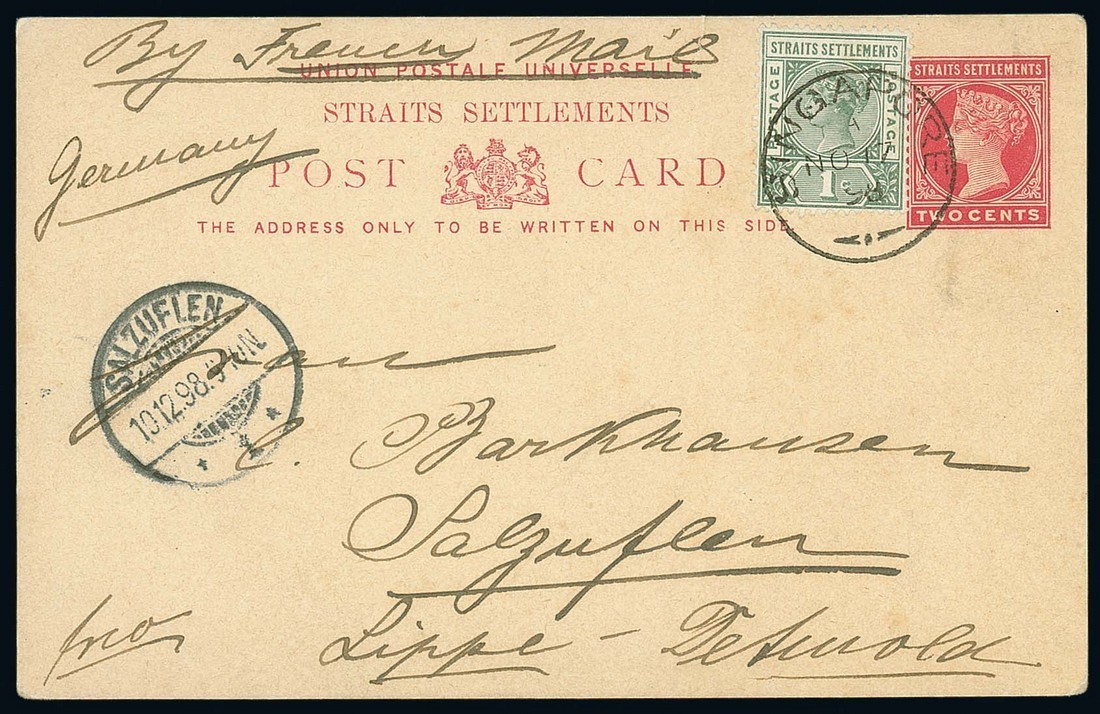 By French Mail
UNION POSTALE UNIVERSELLE
STRAITS SETTLEMENTS
Germany
POST CARD
THE ADDRESS ONLY TO BE WRITTEN ON THIS SIDE
STRAITS SETTLEMENTS
POSTAGE POSTAGE
1c.
STRAITS SETTLEMENTS
TWO CENTS
SINGAPORE
NO
98
SALZUFLEN
10.12.98.
C. Barkhausen
Salzuflen
frco
Lippe - Detmold